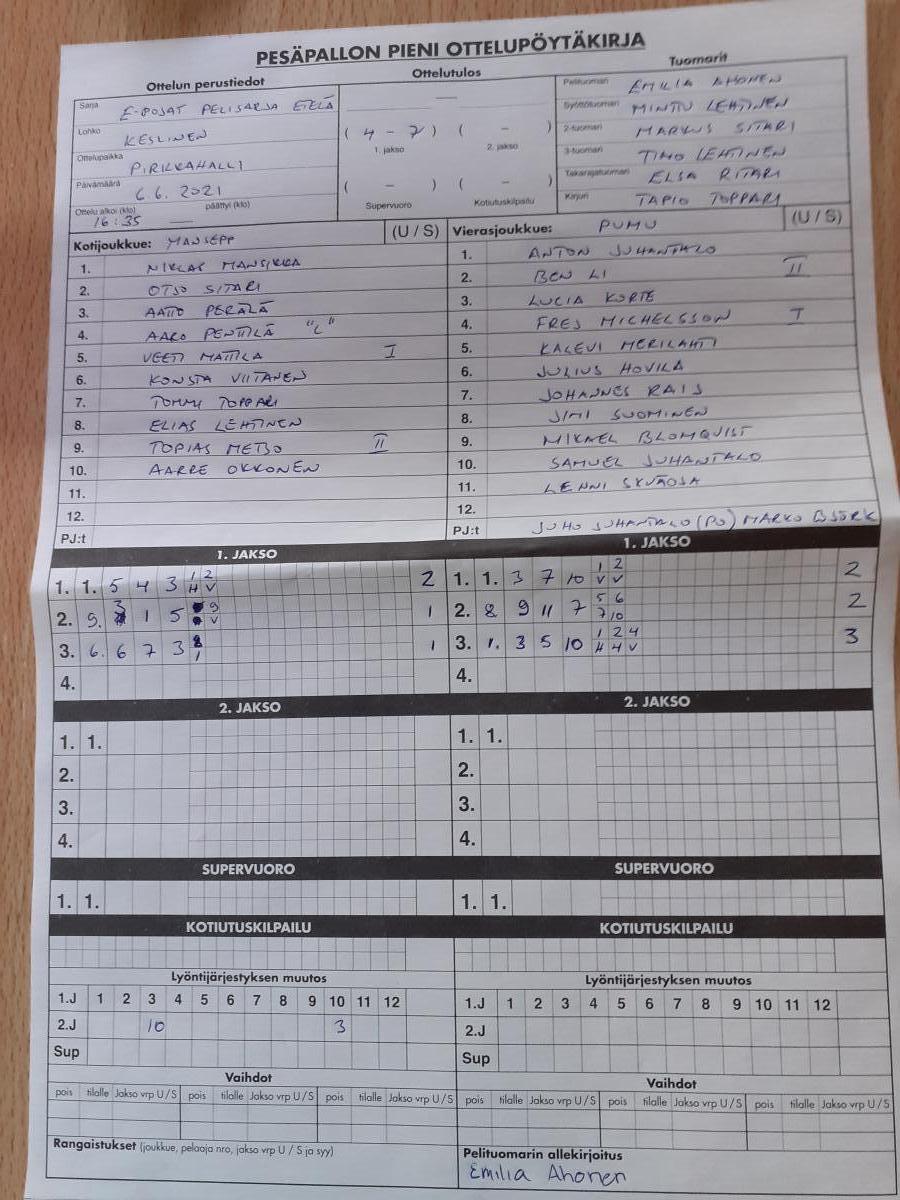 PESÄPALLON PIENI OTTELUPÖYTÄKIRJA
Ottelun perustiedot Ottelutulos Tuomarit
Sarja E-POJAT PELISARJA ETELÄ
Lohko KESLINEN
Ottelupaikka PIRKKAHALLI
Päivämäärä 6.6.2021
Ottelu alkoi (klo) 16:35 päättyi (klo)
( 4 - 7 ) ( - )
1. jakso 2. jakso
( - ) ( - )
Supervuoro Kotiutuskilpailu
Pelituomari EMILIA AHONEN
Syöttötuomari MINTTU LEHTINEN
2-tuomari MARKUS SITARI
3-tuomari TIMO LEHTINEN
Takarajatuomari ELSA RITARI
Kirjuri TAPIO TOPPARI
Kotijoukkue: MANSEPP (U / S)
1. NIKLAS MANSIKKA
2. OTSO SITARI
3. AATTO PERÄLÄ
4. AARO PENTTILÄ "L"
5. VEETI MATTILA I
6. KONSTA VIITANEN
7. TOMMI TOPPARI
8. ELIAS LEHTINEN
9. TOPIAS METSO II
10. AARRE OKKONEN
11.
12.
PJ:t
Vierasjoukkue: PUMU (U / S)
1. ANTON JUHANTALO
2. BEN LI II
3. LUCIA KORTE
4. FREJ MICHELSSON I
5. KALEVI MERILAHTI
6. JULIUS HOVILA
7. JOHANNES RAIS
8. JIMI SUOMINEN
9. MIKAEL BLOMQVIST
10. SAMUEL JUHANTALO
11. LENNI
12.
PJ:t JUHO JUHANTALO (PJ) MARKO BJÖRK
1. JAKSO 1. JAKSO
1. 1. 5 4 3 1 2 H V 2
2. 9. 3 1 5 9 V 1
3. 6. 6 7 3 8 1 1
4.
1. 1. 3 7 10 1 2 V V 2
2. 8 9 11 7 5 6 7 10 2
3. 1. 3 5 10 1 2 4 H 4 V 3
4.
2. JAKSO 2. JAKSO
1. 1. 1. 1.
2. 2.
3. 3.
4. 4.
SUPERVUORO SUPERVUORO
1. 1. 1. 1.
KOTIUTUSKILPAILU KOTIUTUSKILPAILU
Lyöntijärjestyksen muutos Lyöntijärjestyksen muutos
1.J 1 2 3 4 5 6 7 8 9 10 11 12 1.J 1 2 3 4 5 6 7 8 9 10 11 12
2.J 10 3 2.J
Sup Sup
Vaihdot Vaihdot
pois tilalle Jakso vrp U / S pois tilalle Jakso vrp U / S pois tilalle Jakso vrp U / S pois tilalle Jakso vrp U / S pois tilalle Jakso vrp U / S pois tilalle Jakso vrp U / S
Rangaistukset (joukkue, pelaaja nro, jakso vrp U / S ja syy) Pelituomarin allekirjoitus
Emilia Ahonen